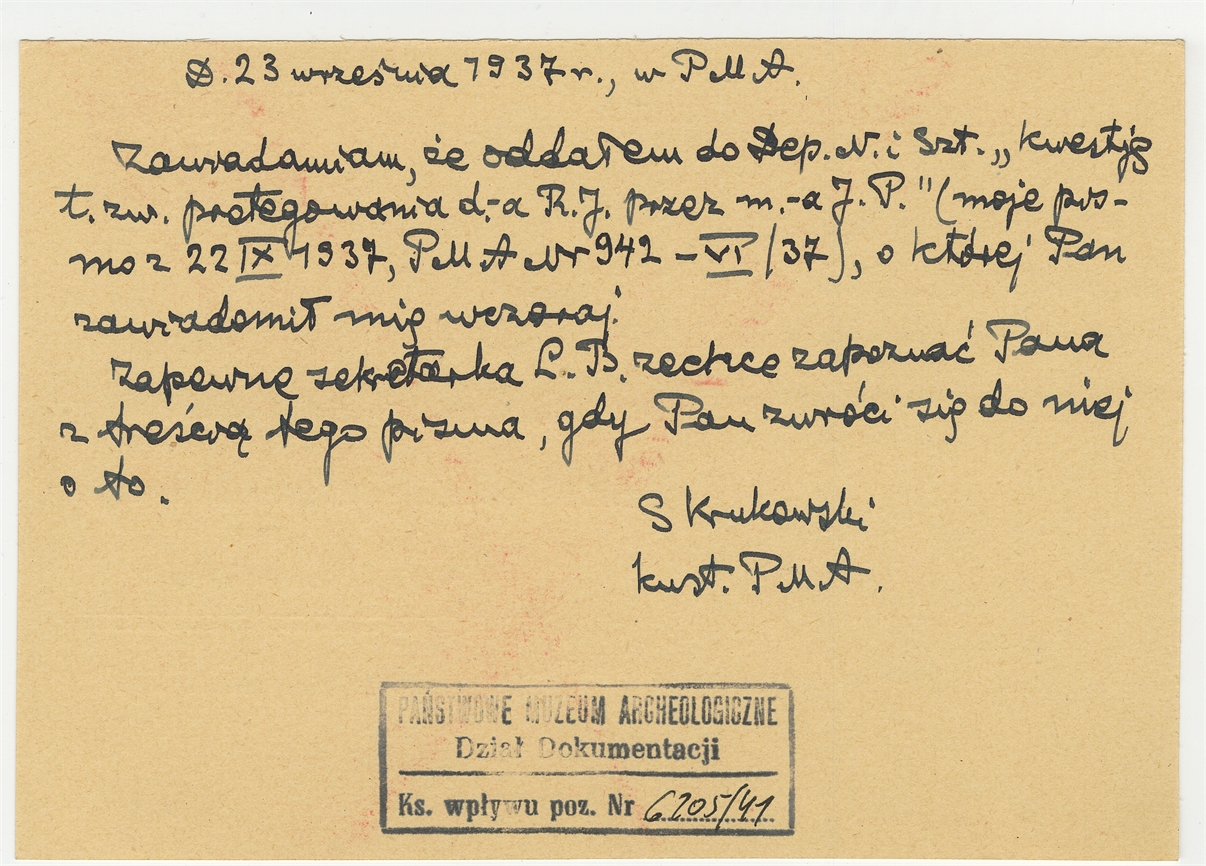 D. 23 września 1937 r., w P M A.
Zawiadamiam, że oddałem do Dep. N. i Szt. „kwestję
t. zw. protegowania d.-a R. J. przez m.-a J. P." (moje pis-
mo z 22 IX 1937, P M A Nr 942 – VI /37), o której Pan
zawiadomił mię wczoraj.
Zapewne sekretarka L. B. zechce zapoznać Pana
z treścią tego pisma, gdy Pan zwróci się do niej
o to.
S Krukowski
kust. P M A.
PAŃSTWOWE MUZEUM ARCHEOLOGICZNE
Dział Dokumentacji
Ks. wpływu poz. Nr 6205/41